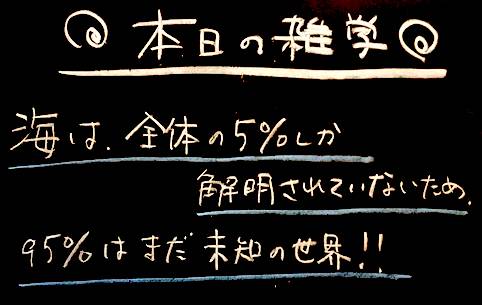 本日の雑学
海は、全体の5%しか
解明されていないため、
95%はまだ未知の世界!!